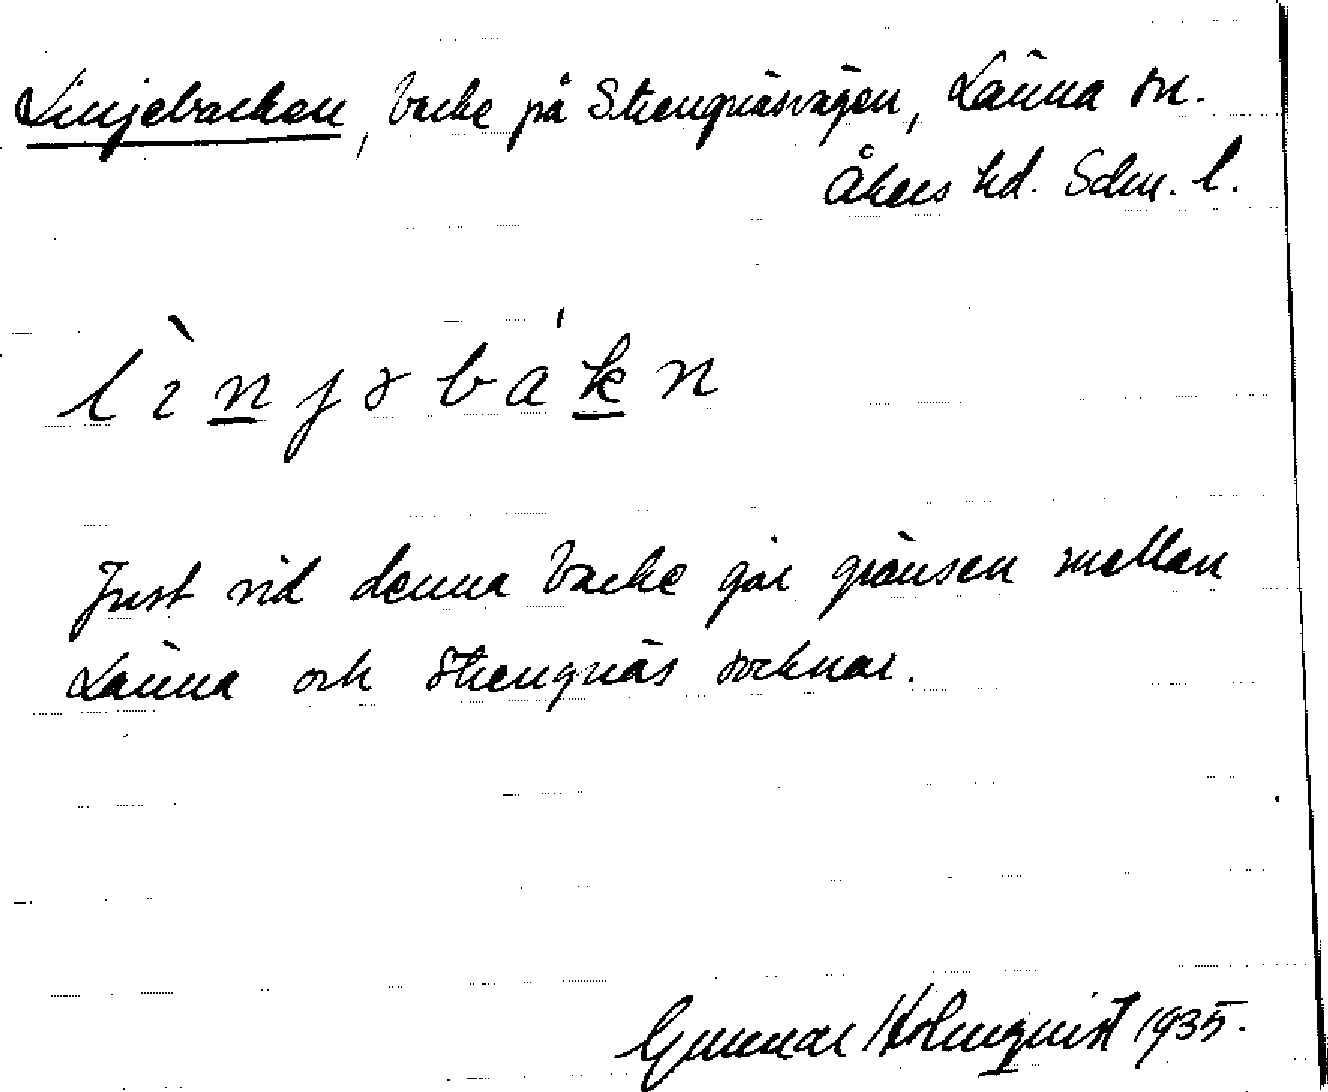 Linjebacken, backe på Strengnäsvägen, Länna sn.
Åkers hd. Södm. l.
lìnjəbákn
Just vid denna backe går gränsen mellan
Länna och Strengnäs socknar.
Gunnar Holmquist 1935.